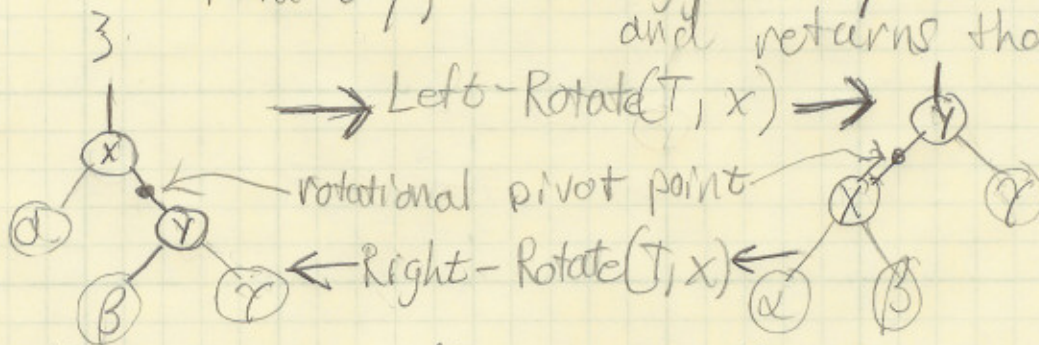 3.
and returns tha
Left-Rotate(T, x)
x
Y
rotational pivot point
α
Y
X
γ
Right-Rotate(T, x)
β
γ
α
β